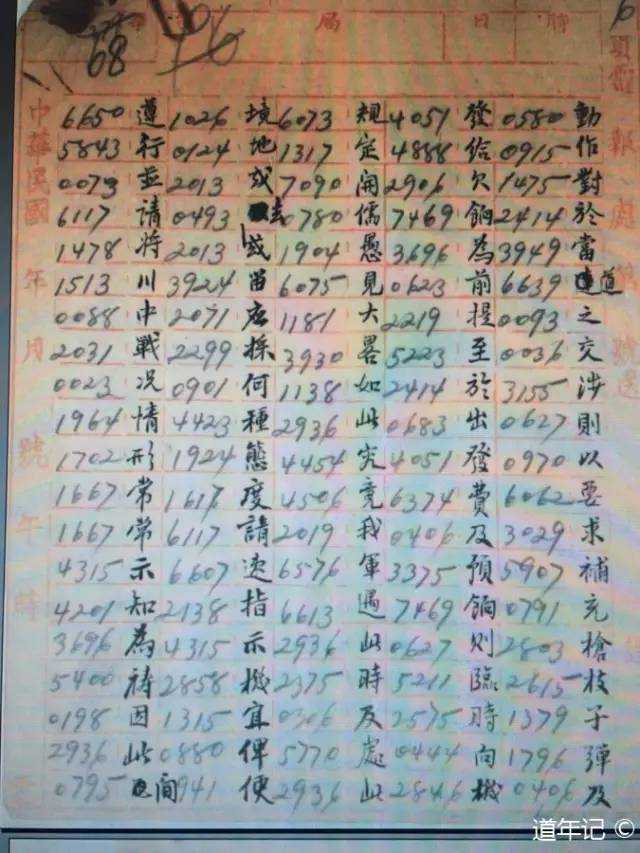 局 日 時
68
0580 動 0915 作 1475 對 2414 於 3949 當 6639 道 0093 之 0036 交 3155 涉 0627 則 0970 以 6062 要 3029 求 5907 補 0791 充 2803 槍 2615 枝 1379 子 1796 彈 0406 及
4051 發 4888 給 2906 欠 7469 餉 3696 為 0623 前 2219 提 5223 至 2414 於 0683 出 4051 發 6374 費 0406 及 3375 預 7469 餉 0627 則 5211 臨 2575 時 0444 向 2846 機
6073 規 1317 定 7090 開 0780 儒 1904 愚 6075 見 1181 大 3930 畧 1138 如 2936 此 4454 究 4506 竟 2019 我 6576 軍 6613 遇 2936 此 2375 時 0306 及 5770 處 2936 此
1026 境 0124 地 2013 或 0493 去 2013 或 3924 留 2071 應 2299 採 0901 何 4423 種 1924 態 1617 度 6117 請 6607 速 2138 指 4315 示 2858 機 1315 宜 0880 俾 1941 便
6650 遵 5843 行 0073 並 6117 請 1478 將 1513 川 0088 中 2031 戰 0023 況 1964 情 1702 形 1667 常 1667 常 4315 示 4201 知 3696 為 5400 禱 0198 因 2936 此 0795 間
中華民國 年 月 號 午 時
道年记 ©